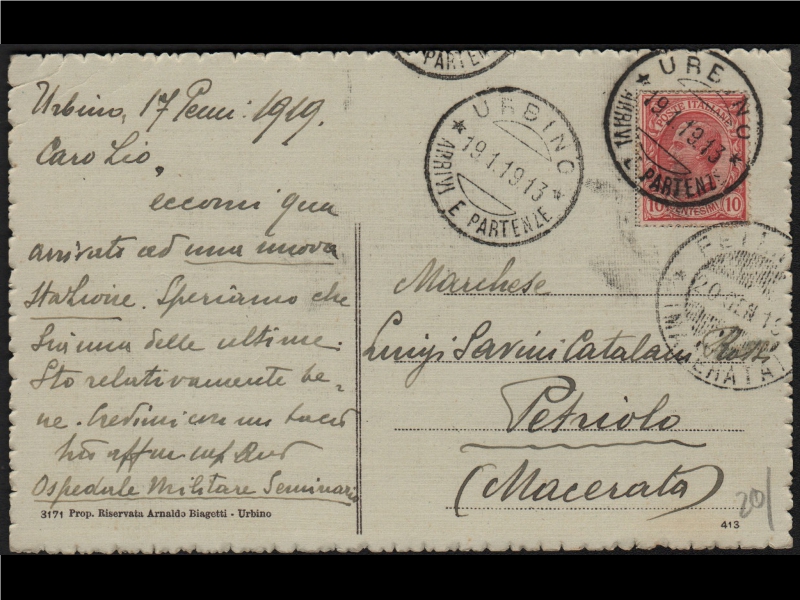 PARTENZE
Urbino, 17 Genn: 1919.
Caro Lio,
eccomi qua
arrivato ad una nuova
stazione. Speriamo che
sia una delle ultime.
Sto relativamente be-
ne. Credimi con un bacio
Ospedale Militare Seminario
3171 Prop. Riservata Arnaldo Biagetti - Urbino
URBINO
19.1.19 13
ARRIVI E PARTENZE
URBINO
19.1.19 13
ARRIVI E PARTENZE
POSTE ITALIANE
10 CENTESIMI 10
20 GEN 19
MACERATA
Marchese
Luigi Savini Catalani Rotti
Petriolo
(Macerata)
20/
413